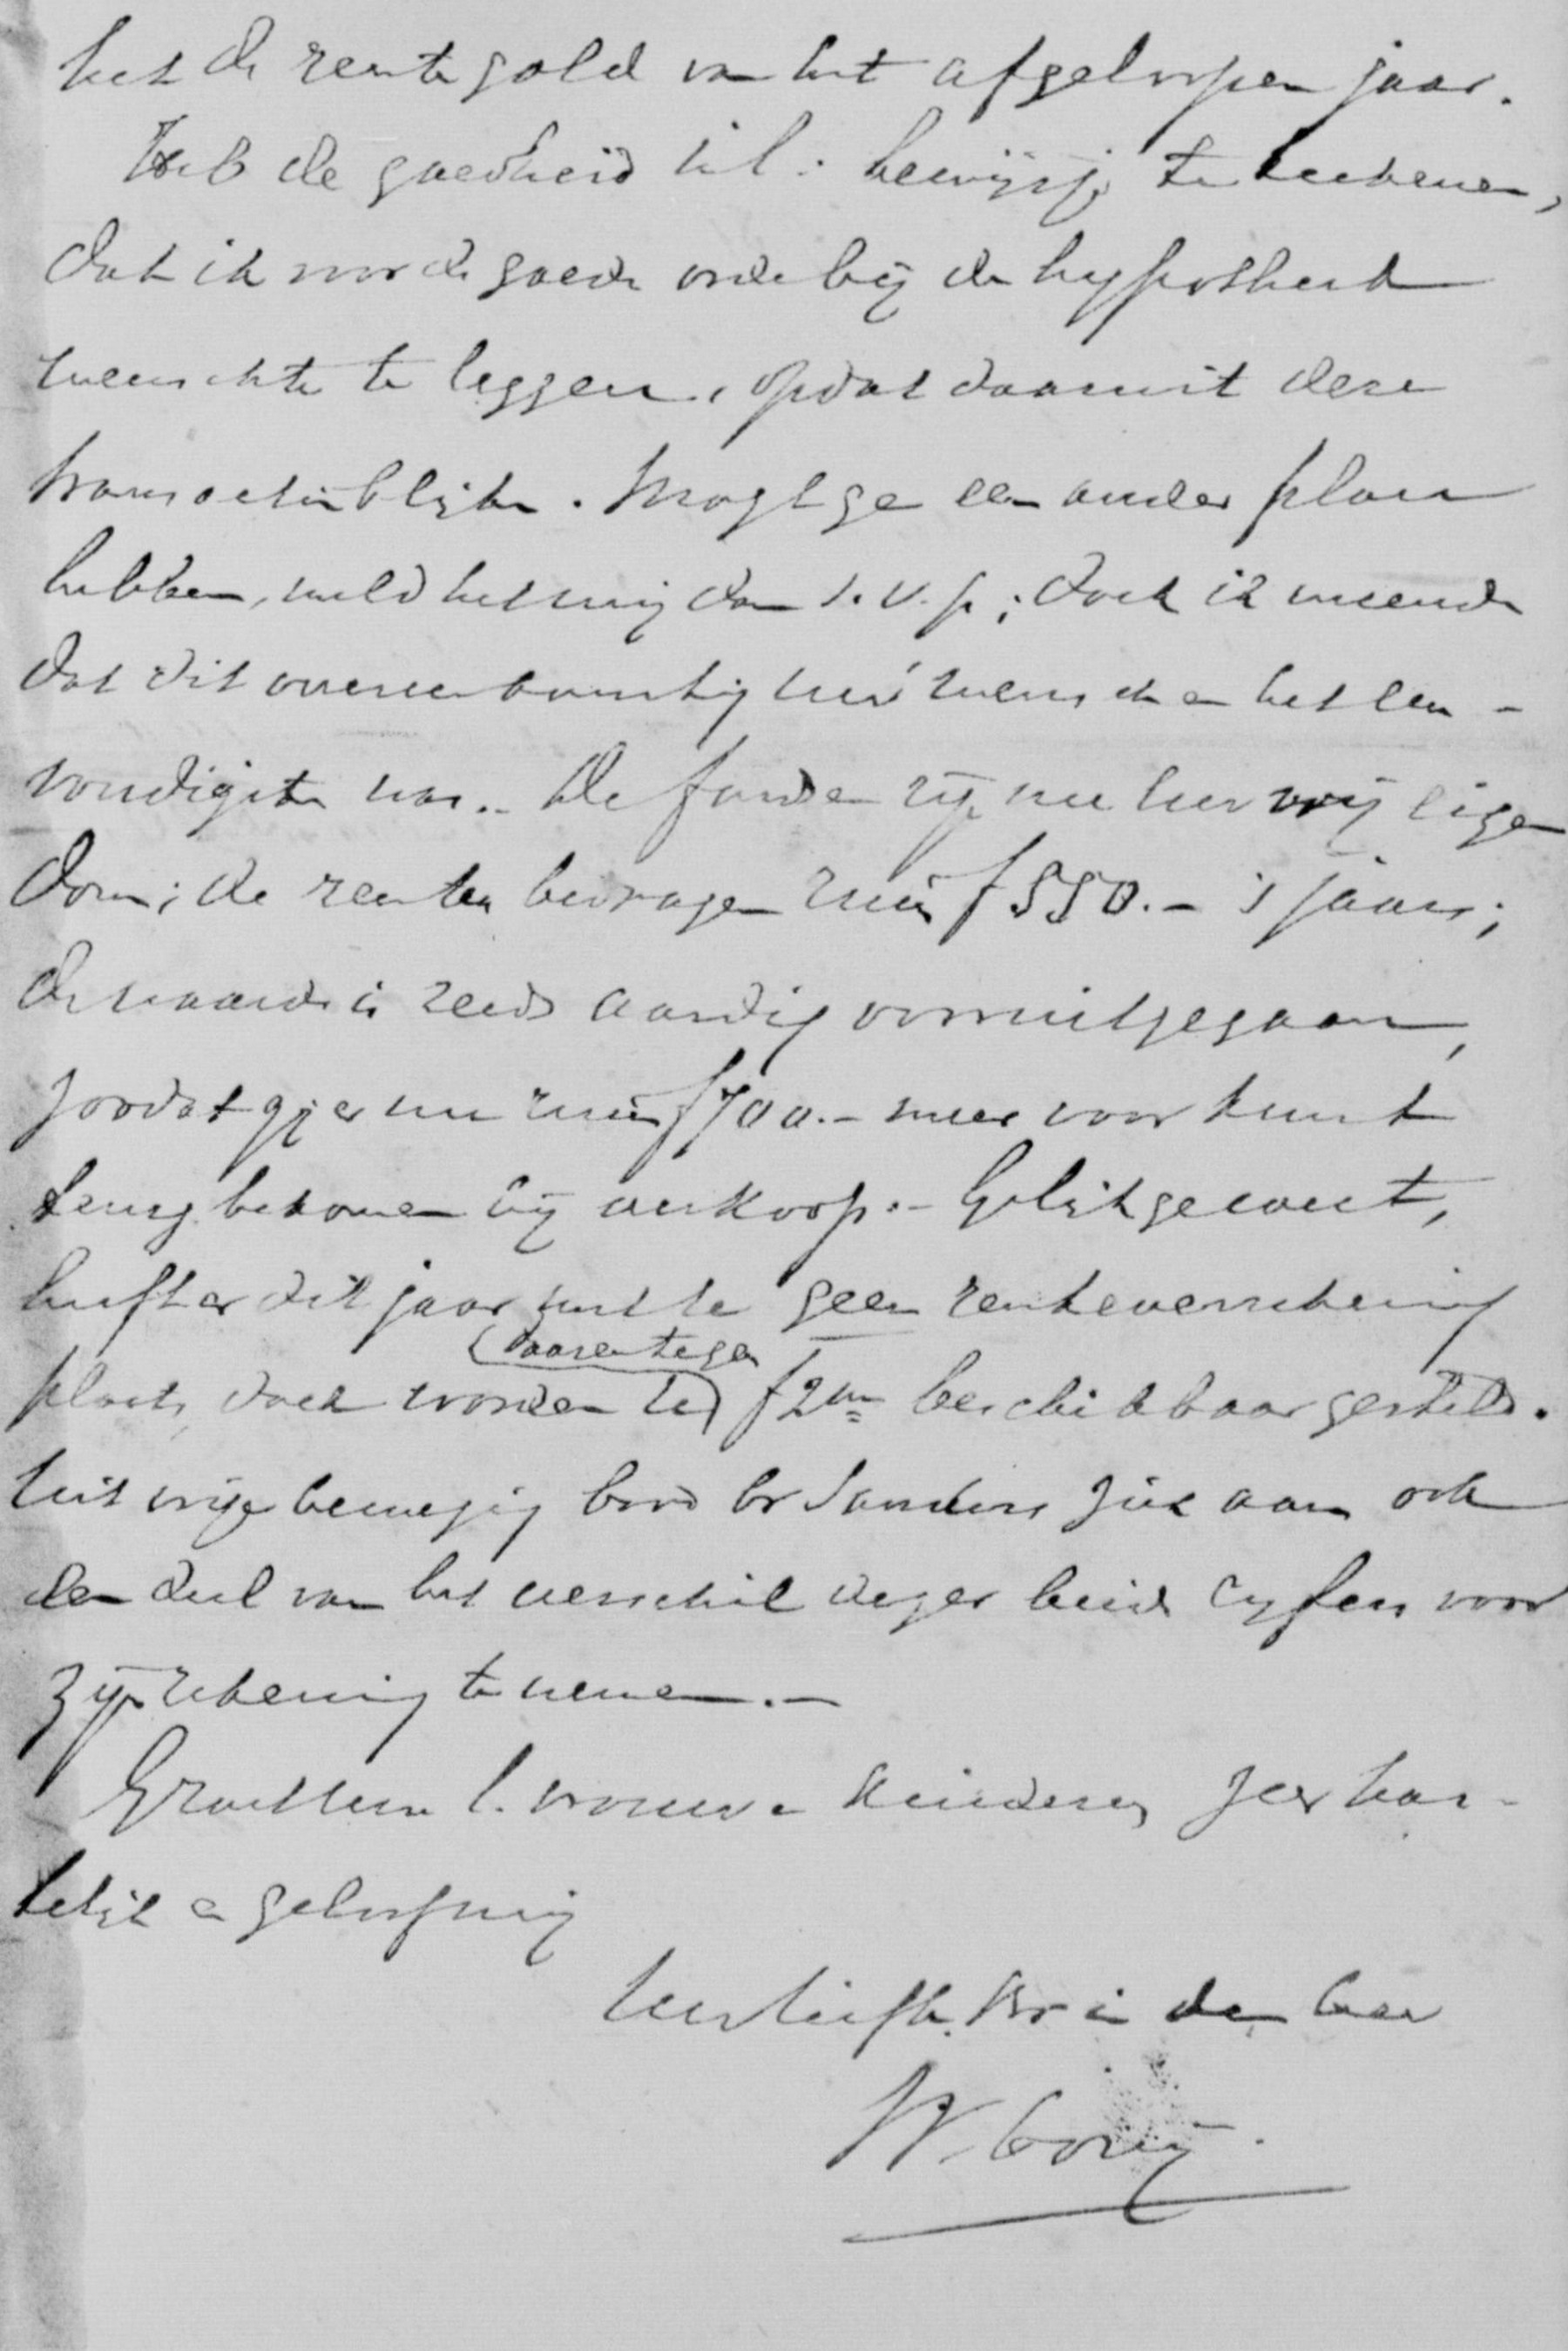 het de rente gold van het afgeloopen jaar.
Heb de goedheid bewijsje te teekenen,
dat ik voor de goede orde bij de hypotheek
wenschte te leggen, opdat daaruit deze
transactie blijke. Mogt ge een ander plan
hebben, meld het mij dan s.v.p.; doch ik meende
dat dit overeenkomstig uw wenschen het een-
voudigste was. De fondsen zijn nu uw vrij eigen
dom; de renten bedragen ruim f 550.- 's jaars;
de waarde is reeds aardig vooruitgegaan,
zoodat gij er nu ruim f 700.- meer voor kunt
terugbekomen bij verkoop. - Gelijk geweest,
heeft er dit jaar geen renteverrekening
plaats, doch worden U (daarentegen) f 2 m beschikbaar gesteld.
Uit vrije beweging bood br Sanders zich aan ook
een deel van het verschil dezer beide cijfers voor
zijn rekening te nemen. -
Groet uw l. vrouw en kinderen zeer har-
telijk en geloof mij
Uw liefh. br in den Heer
W.